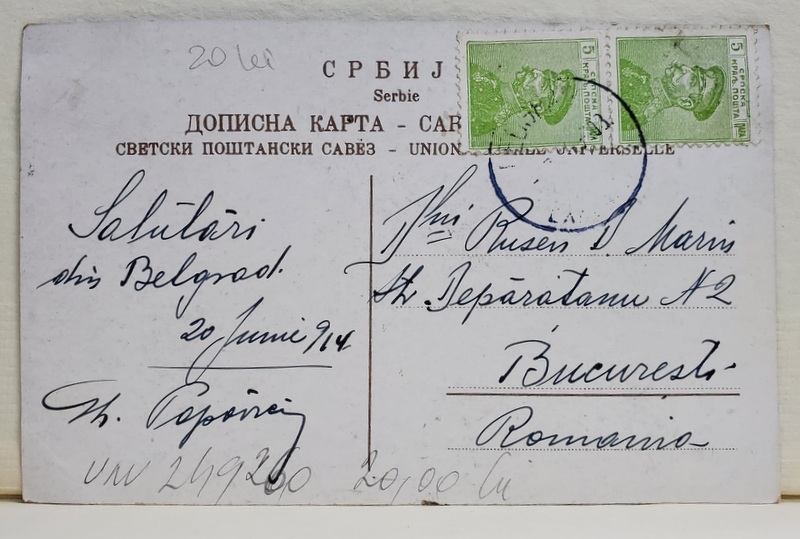 20 lei
СРБИЈ
Serbie
ДОПИСНА КАРТА - CAR
СВЕТСКИ ПОШТАНСКИ САВЕЗ - UNION UNIVERSELLE
5 СРПСКА КРАЉ. ПОШТА ПАРА
5 СРПСКА КРАЉ. ПОШТА ПАРА
Salutări
din Belgrad.
20 Junie 914
Th. Popovici
Dlui Rusen D. Marin
Str. Depărăţeanu N 2
Bucuresti
Romania
20,00 lei